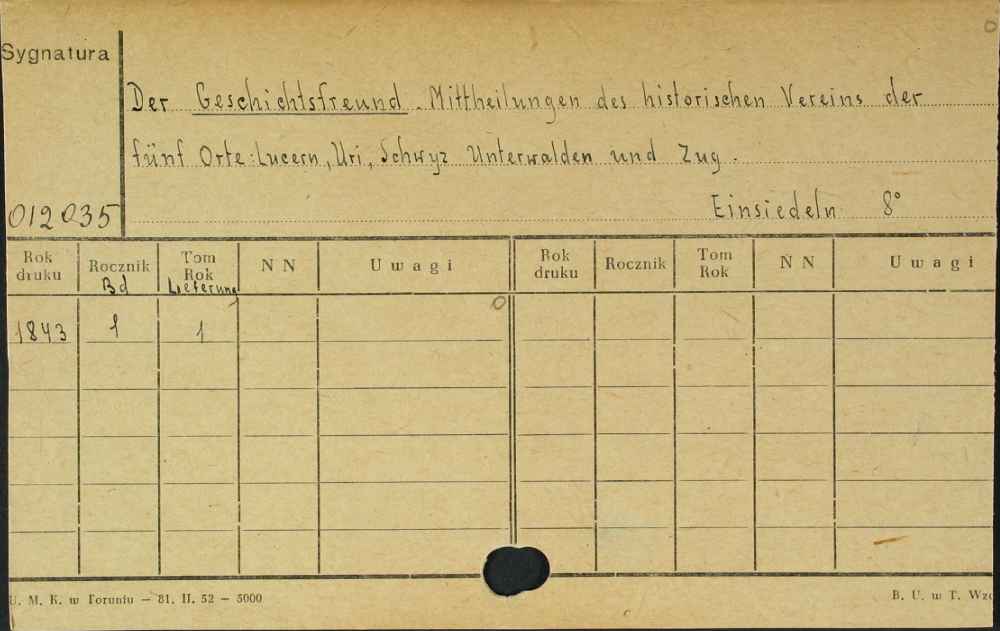 Sygnatura
Der Geschichtsfreund. Mittheilungen des historischen Vereins der
fünf Orte: Lucern, Uri, Schwyz Unterwalden und Zug.
012035
Einsiedeln 8°
Rok druku Rocznik Tom Rok NN Uwagi Rok druku Rocznik Tom Rok NN Uwagi
Bd Lieferung
1843 1 1
U. M. K. w Toruniu — 81. II. 52 — 5000
B. U. w T.